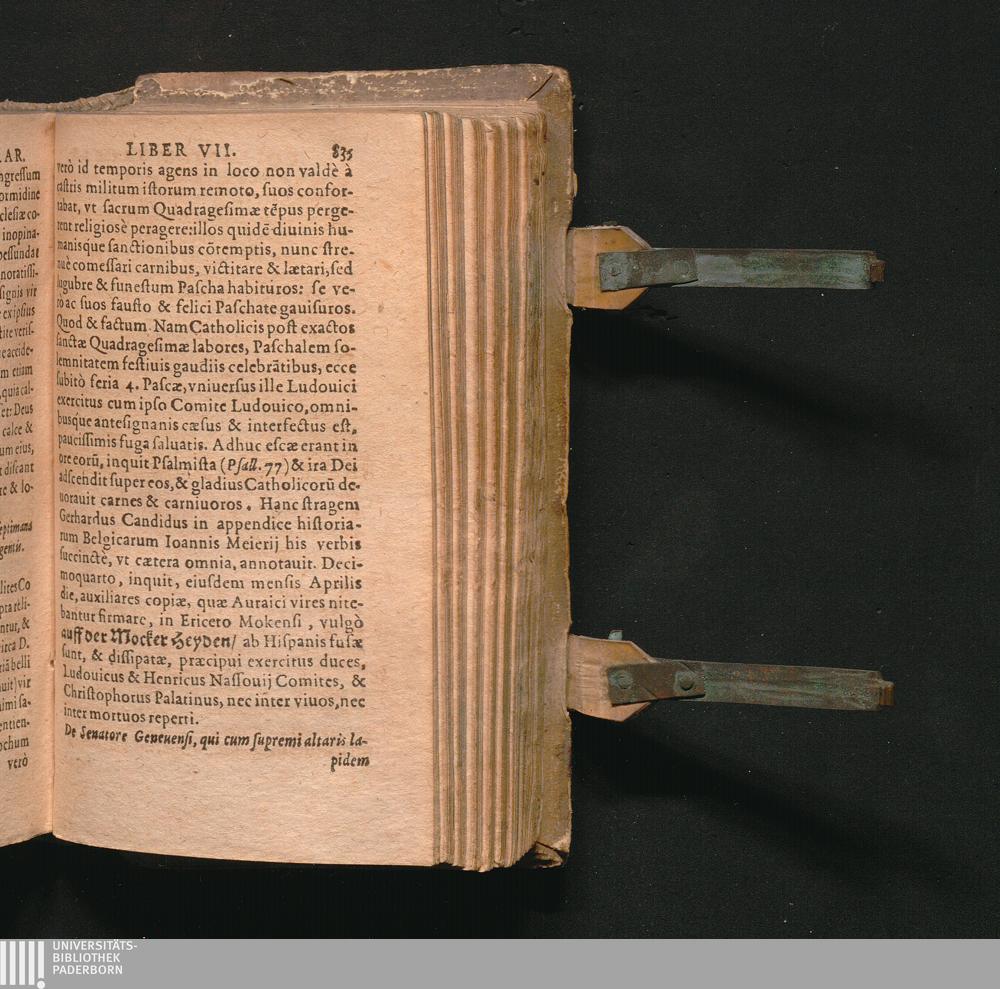 .AR.
ngressum
ormidine
clesiæ co-
inopina-
pessundat
noratissi-
signis vir
ex ipsius
m etiam
quia cal-
et: Deus
calce &
um eius,
t discant
re & lo-
eptimana
lites Co
ntur, &
irca D.
riā belli
uit) vir
entien-
ochum
verò
LIBER VII. 835
verò id temporis agens in loco non valdè à
castris militum istorum remoto, suos confor-
tabat, vt sacrum Quadragesimæ tēpus perge-
rent religiosè peragere: illos quidē diuinis hu-
manisque sanctionibus cōtemptis, nunc stre-
nuè comessari carnibus, victitare & lætari, sed
lugubre & funestum Pascha habituros: se ve-
rò ac suos fausto & felici Paschate gauisuros.
Quod & factum. Nam Catholicis post exactos
sanctæ Quadragesimæ labores, Paschalem so-
lemnitatem festiuis gaudiis celebrātibus, ecce
subitò feria 4. Pascæ, vniuersus ille Ludouici
exercitus cum ipso Comite Ludouico, omni-
busque antesignanis cæsus & interfectus est,
paucissimis fuga saluatis. Adhuc escæ erant in
ore eorū, inquit Psalmista (Psall. 77) & ira Dei
adscendit super eos, & gladius Catholicorū de-
uorauit carnes & carniuoros. Hanc stragem
Gerhardus Candidus in appendice historia-
rum Belgicarum Ioannis Meierij his verbis
succinctè, vt cætera omnia, annotauit. Deci-
moquarto, inquit, eiusdem mensis Aprilis
die, auxiliares copiæ, quæ Auraici vires nite-
bantur firmare, in Ericeto Mokensi, vulgò
auff der Mocker Heyden/ ab Hispanis fusæ
sunt, & dissipatæ, præcipui exercitus duces,
Ludouicus & Henricus Nassouij Comites, &
Christophorus Palatinus, nec inter viuos, nec
inter mortuos reperti.
De Senatore Geneuensi, qui cum supremi altaris la-
pidem
UNIVERSITÄTS-
BIBLIOTHEK
PADERBORN